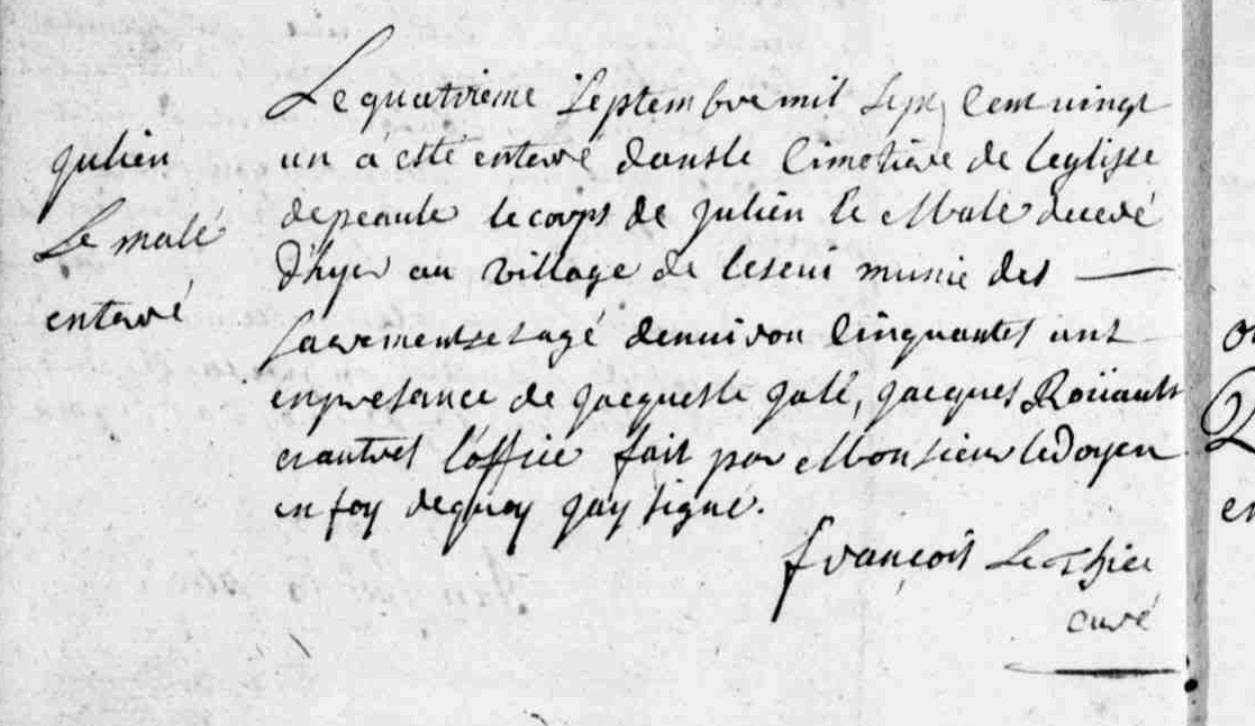 Le quatrieme Septembre mil Sept Cent vingt
un a esté enterré dans le Cimetiere de leglisse
de peaule le corps de julien le Malé decedé
d'hyer au village de leseui munie des
Sacrements et agé denuiron Cinquantes ans
en presence de jacques le galle, jacques Roüault
et autres l'office fait par Monsieur le Doyen
en foy de quoy jay signé.
françois Le Thiec
curé
julien
Le malé
enterré